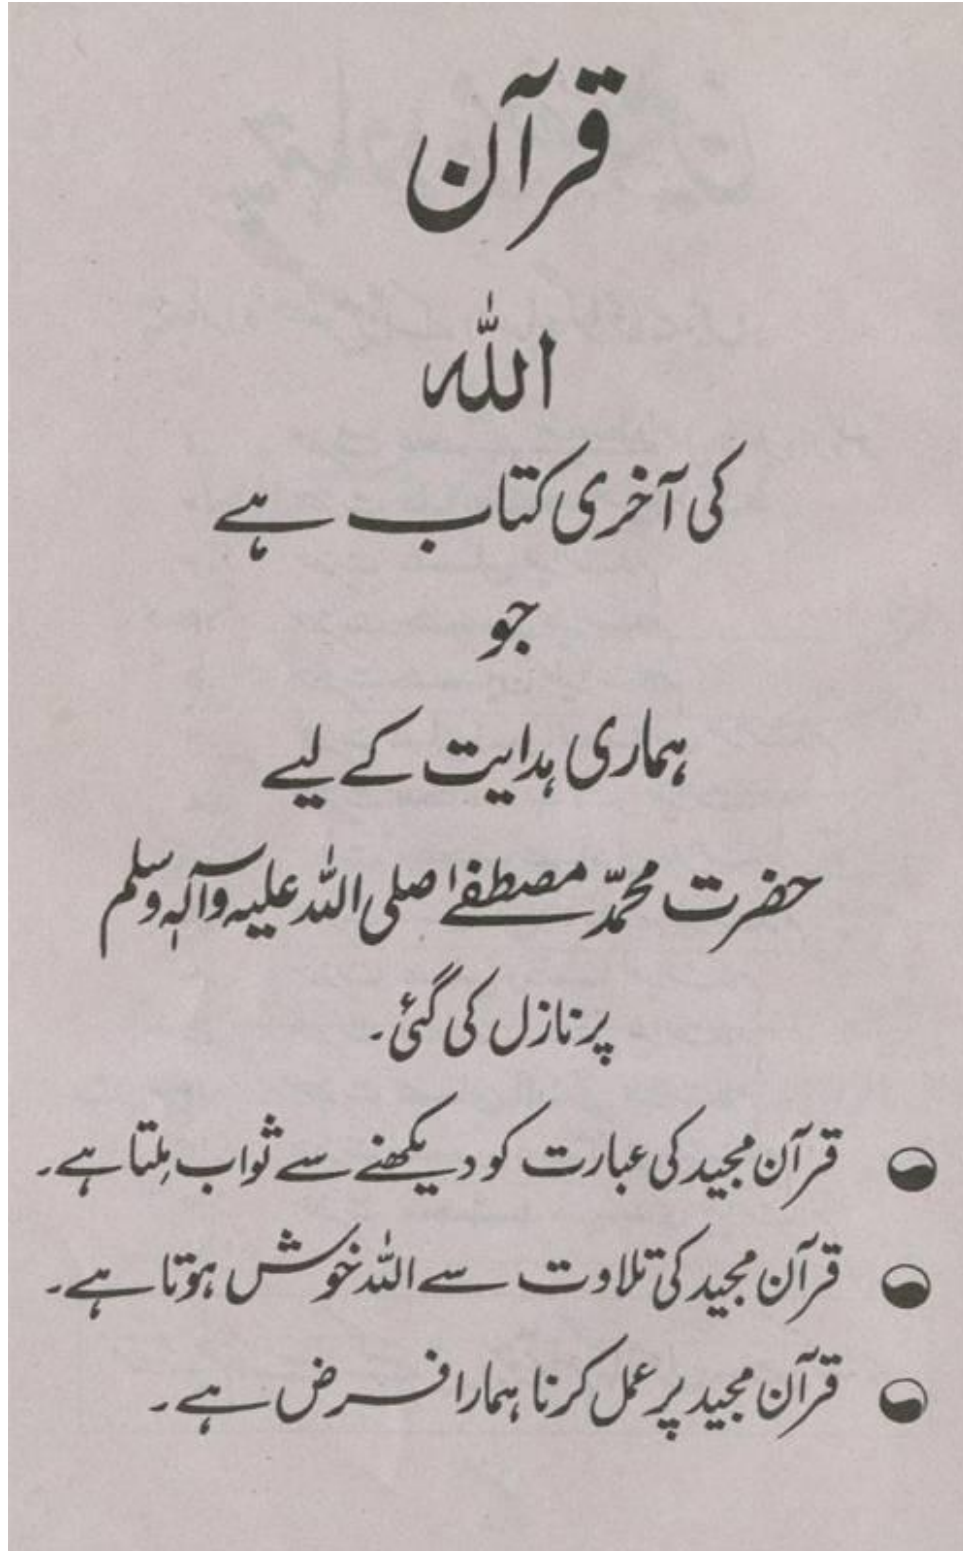 قرآن
اللہ
کی آخری کتاب ہے
جو
ہماری ہدایت کے لیے
حضرت محمدّ مصطفےٰ صلی اللہ علیہ وآلہٖ وسلم
پر نازل کی گئی۔
قرآن مجید کی عبارت کو دیکھنے سے ثواب مِلتا ہے۔
قرآن مجید کی تلاوت سے اللہ خوش ہوتا ہے۔
قرآن مجید پر عمل کرنا ہمارا فرض ہے۔